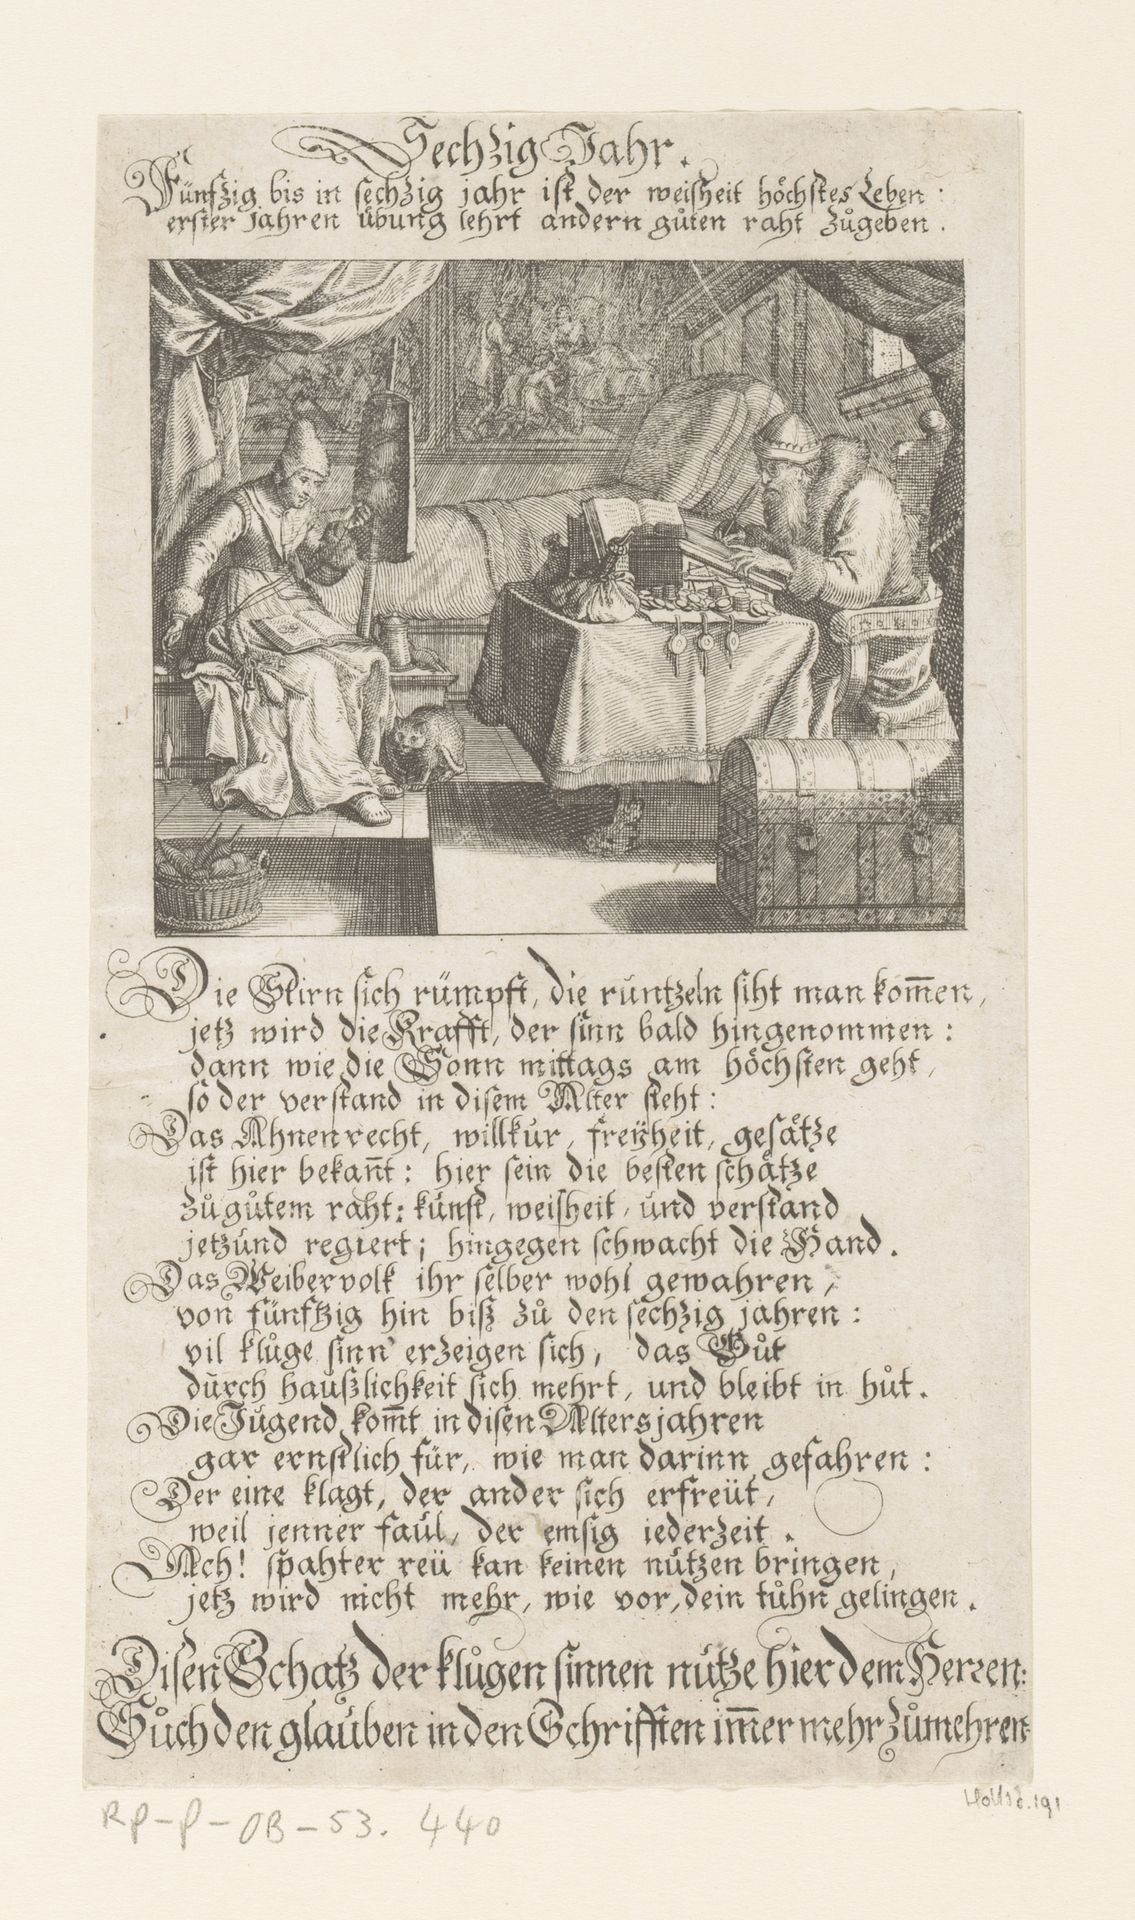 Sechzig Jahr.
Fünfzig bis in sechzig jahr ist der weisheit höchstes Leben:
erster Jahren übung lehrt andern gůten raht zůgeben.
Die Stirn sich rümpft, die runtzeln siht man kom̅en,
jetz wird die Krafft, der sinn bald hingenommen:
dann wie die Sonn mittags am höchsten geht,
so der verstand in disem Alter steht:
Das Ahnenrecht, willkur, freÿheit, gesätze
ist hier bekan̅t: hier sein die besten schätze
zůgůtem raht: kunst, weisheit, und verstand
jetzund regiert; hingegen schwacht die Hand.
Das Weibervolk ihr selber wohl gewahren,
von fünftzig hin biß zů den sechzig jahren:
vil kluge sinn erzeigen sich, das Gůt
durch haußlichkeit sich mehrt, und bleibt in hůt.
Die Jugend kom̅t in disen Altersjahren
gar ernstlich für, wie man darinn gefahren:
Der eine klagt, der ander sich erfreüt,
weil jenner faul, der emsig iederzeit.
Ach! spahter reü kan keinen nutzen bringen,
jetz wird nicht mehr, wie vor, dein tůhn gelingen.
Disen Schatz der klůgen sinnen nutze hier dem Herren:
Sůch den glauben in den Schrifften im̅er mehr zůmehren
RP-P-OB-53.440
Hollst. 191